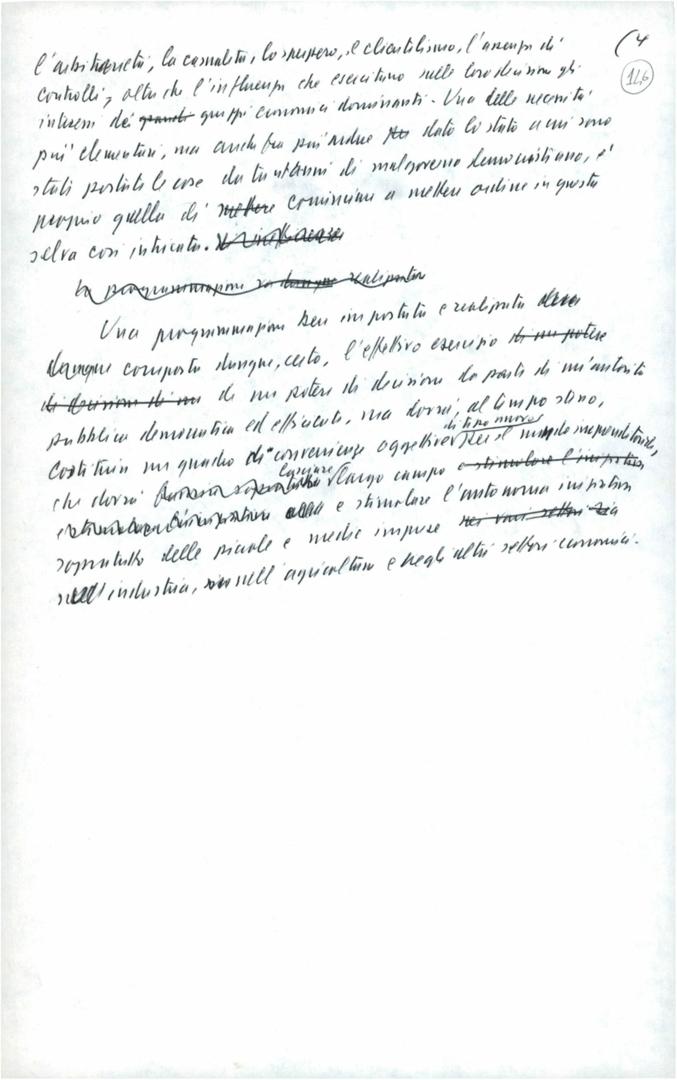 (4
126
l'arbitrarietà, la casualità, lo sperpero, il clientelismo, l'assenza di
controlli, oltre che l'influenza che esercitano sulle loro decisioni gli
interessi dei grandi gruppi economici dominanti. Una delle necessità
più elementari, ma anche tra più ardue dato lo stato a cui sono
stati portate le cose da trent'anni di malgoverno democristiano, è
proprio quella di mettere cominciare a mettere ordine in questa
selva così intricata.
La programmazione realizzata
Una programmazione ben impostata e realizzata deve
dunque comporta dunque, certo, l'effettivo esercizio di un potere
di decisione di un di un potere di decisione da parte di un'autorità
pubblica democratica ed efficiente, ma dovrà, al tempo stesso,
di tipo nuovo
costituire un quadro di convenienze oggettive per il mondo imprenditoriale,
lasciare
che dovrà largo campo e stimolare l'impresa
e stimolare l'autonoma iniziativa
sopratutto delle piccole e medie imprese nei vari settori
nell'industria, nell'agricoltura e negli altri settori economici.